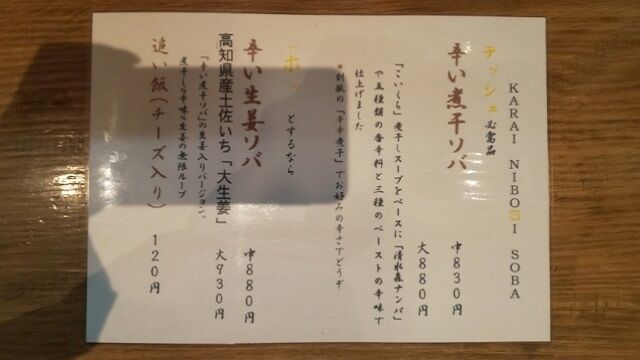 KARAI NIBOSI SOBA
テッシュ必需品
辛い煮干ソバ
中830円
大880円
「こいくち」煮干しスープをベースに「清水森ナンバ」
や五種類の香辛料と三種のペーストの辛味で
仕上げました
*刺激の「辛辛煮干」でお好みの辛さでどうぞ
「ホッ」とするなら
辛い生姜ソバ
中880円
高知県産土佐いち「大生姜」
大930円
「辛い煮干ソバ」の生姜入りバージョン。
煮干し&辛味&生姜の無限ループ
追い飯(チーズ入り)
120円